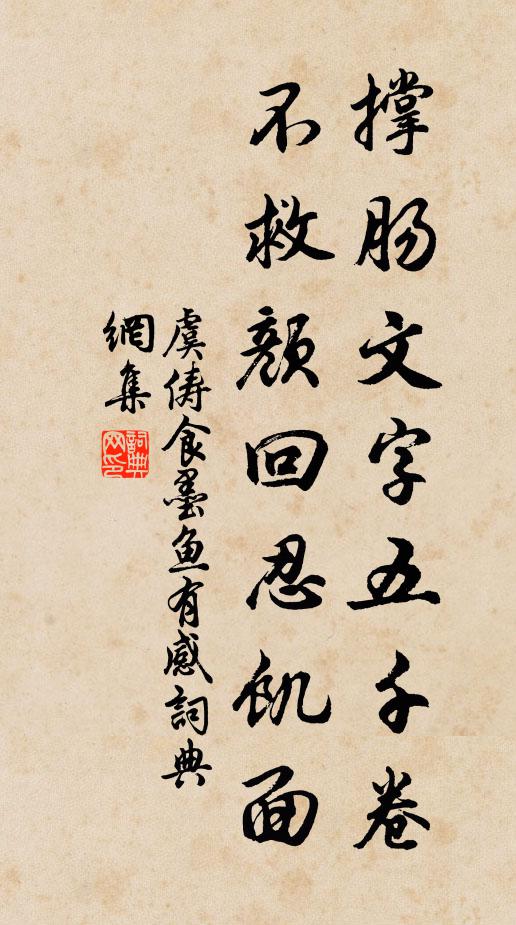 撑肠文字五千卷
不救顏回忍飢面
虞儔食墨魚有感詞典
網集
詞典网印